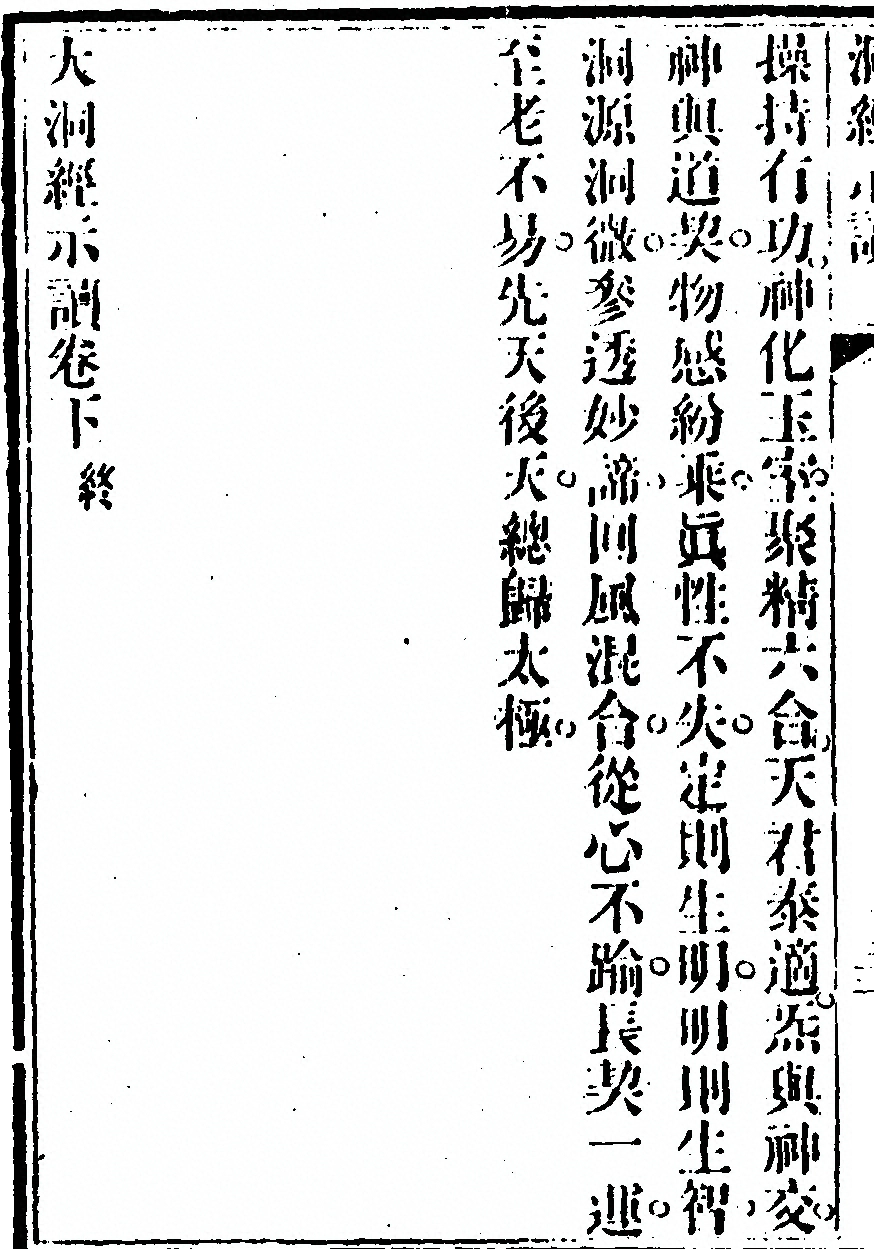 操持有功。神化玉室。聚精六合。天君泰適。炁與神交。
神與道契。物感紛乘。眞性不失。定則生明。明則生智。
洞源洞微。參透妙諦。回風混合。從心不踰。長契一運。
至老不易。先天後天。總歸太極。
大洞經示讀卷下終